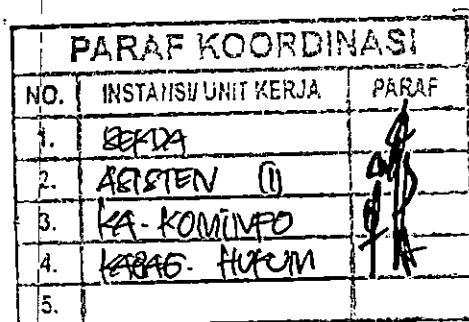 PARAF KOORDINASI
NO. INSTANSI/UNIT KERJA PARAF
1. SEKDA
2. ASISTEN (I)
3. KA-KOMINFO
4. KABAG. HUKUM
5.